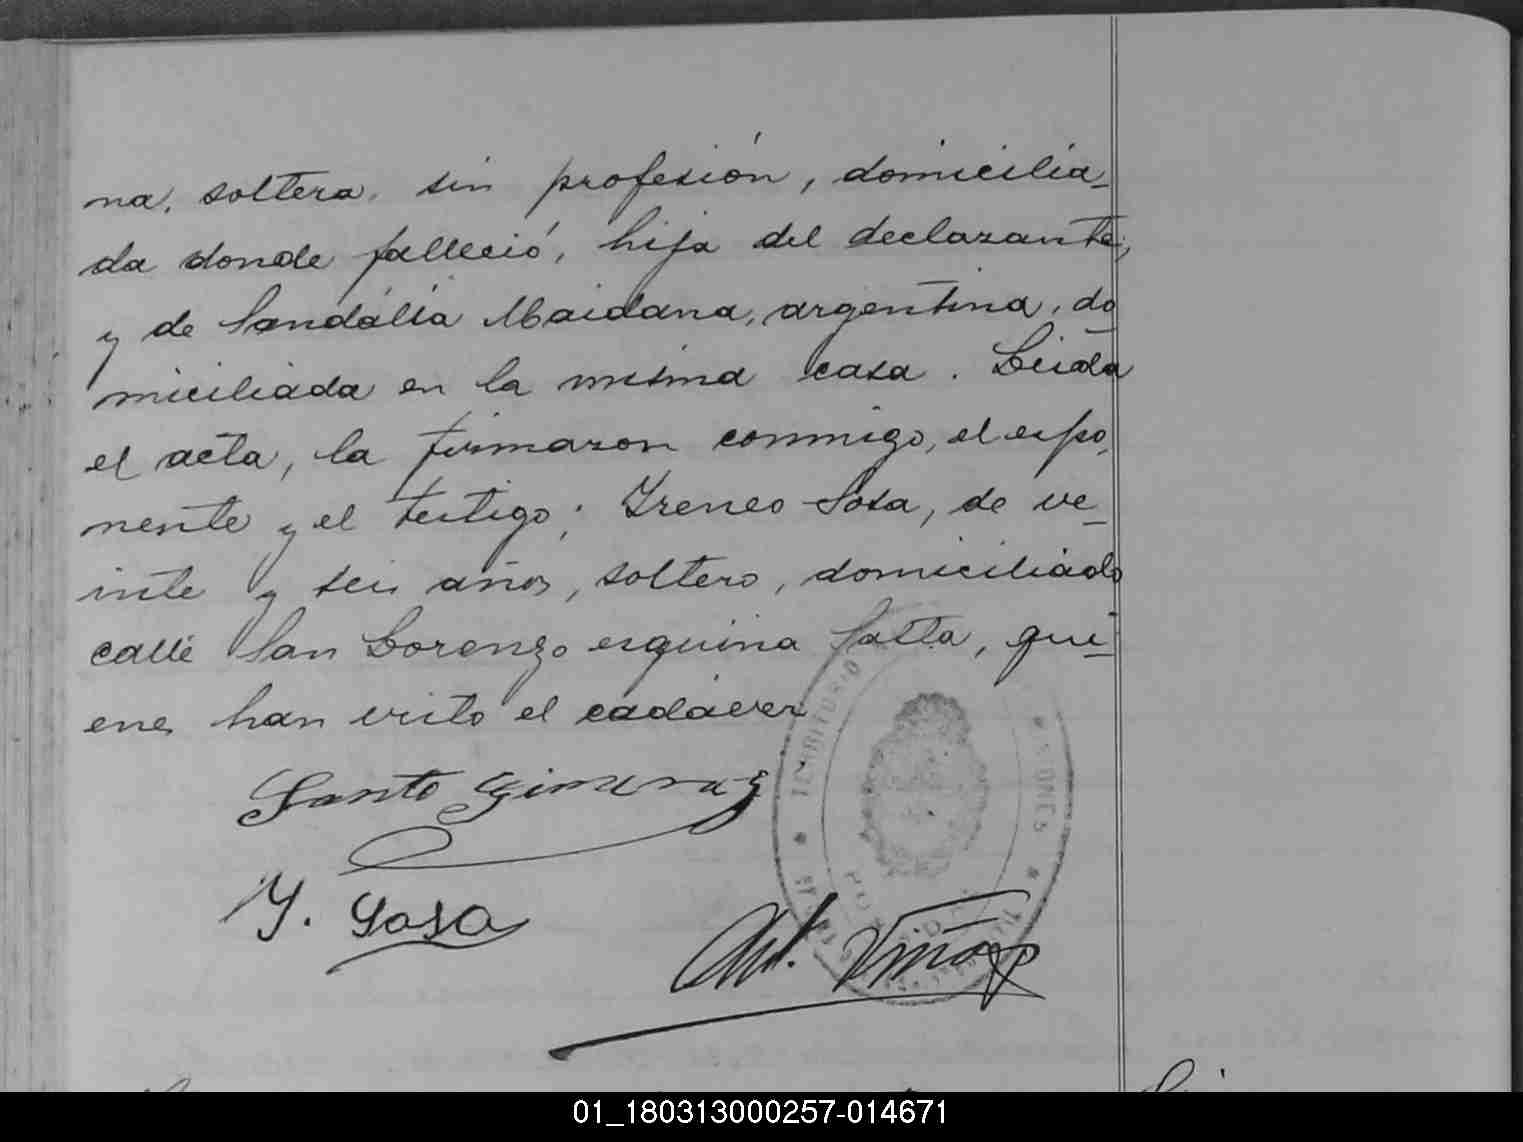 na, soltera, sin profesión, domicilia-
da donde falleció, hija del declarante,
y de Sandalia Maidana, argentina, do
miciliada en la misma casa. Leida
el acta, la firmaron conmigo, el espo,
nente y el testigo; Yreneo Sosa, de ve-
inte y seis años, soltero, domiciliado
calle San Lorenzo esquina Salta, qui-
enes han visto el cadáver
Santo Gimenez
Y. Sosa
TERRITORIO
MISIONES
Viños
01_180313000257-014671